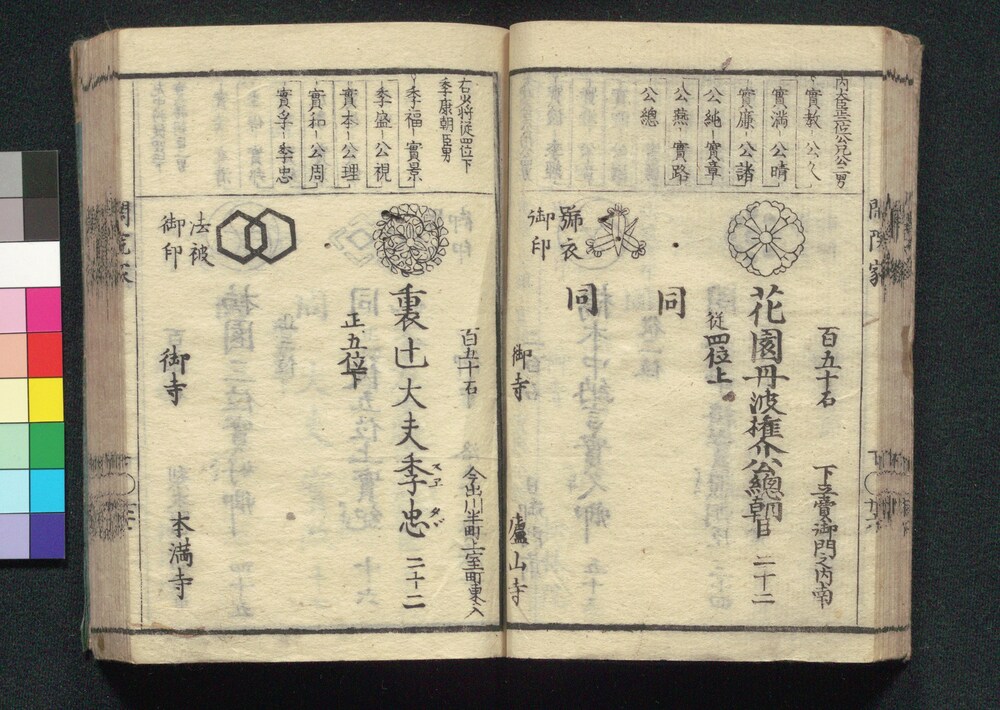 實教ー公久
實満ー公晴
實廉ー公諸
公純ー實章
公燕ー實路
公總
百五十石
花園丹波権介公總朝臣
二十二
従四位上
同
同
號衣
御印
御寺
盧山寺
右少将従四位下
季康朝臣男
季福ー實景
季盛ー公視
實本ー公理
實和ー公周
實孚ー季忠
百五十石
今出川半町上室町東入
裏辻大夫季忠
スヱタヾ
二十二
正五位下
法被
御印
御寺
本満寺